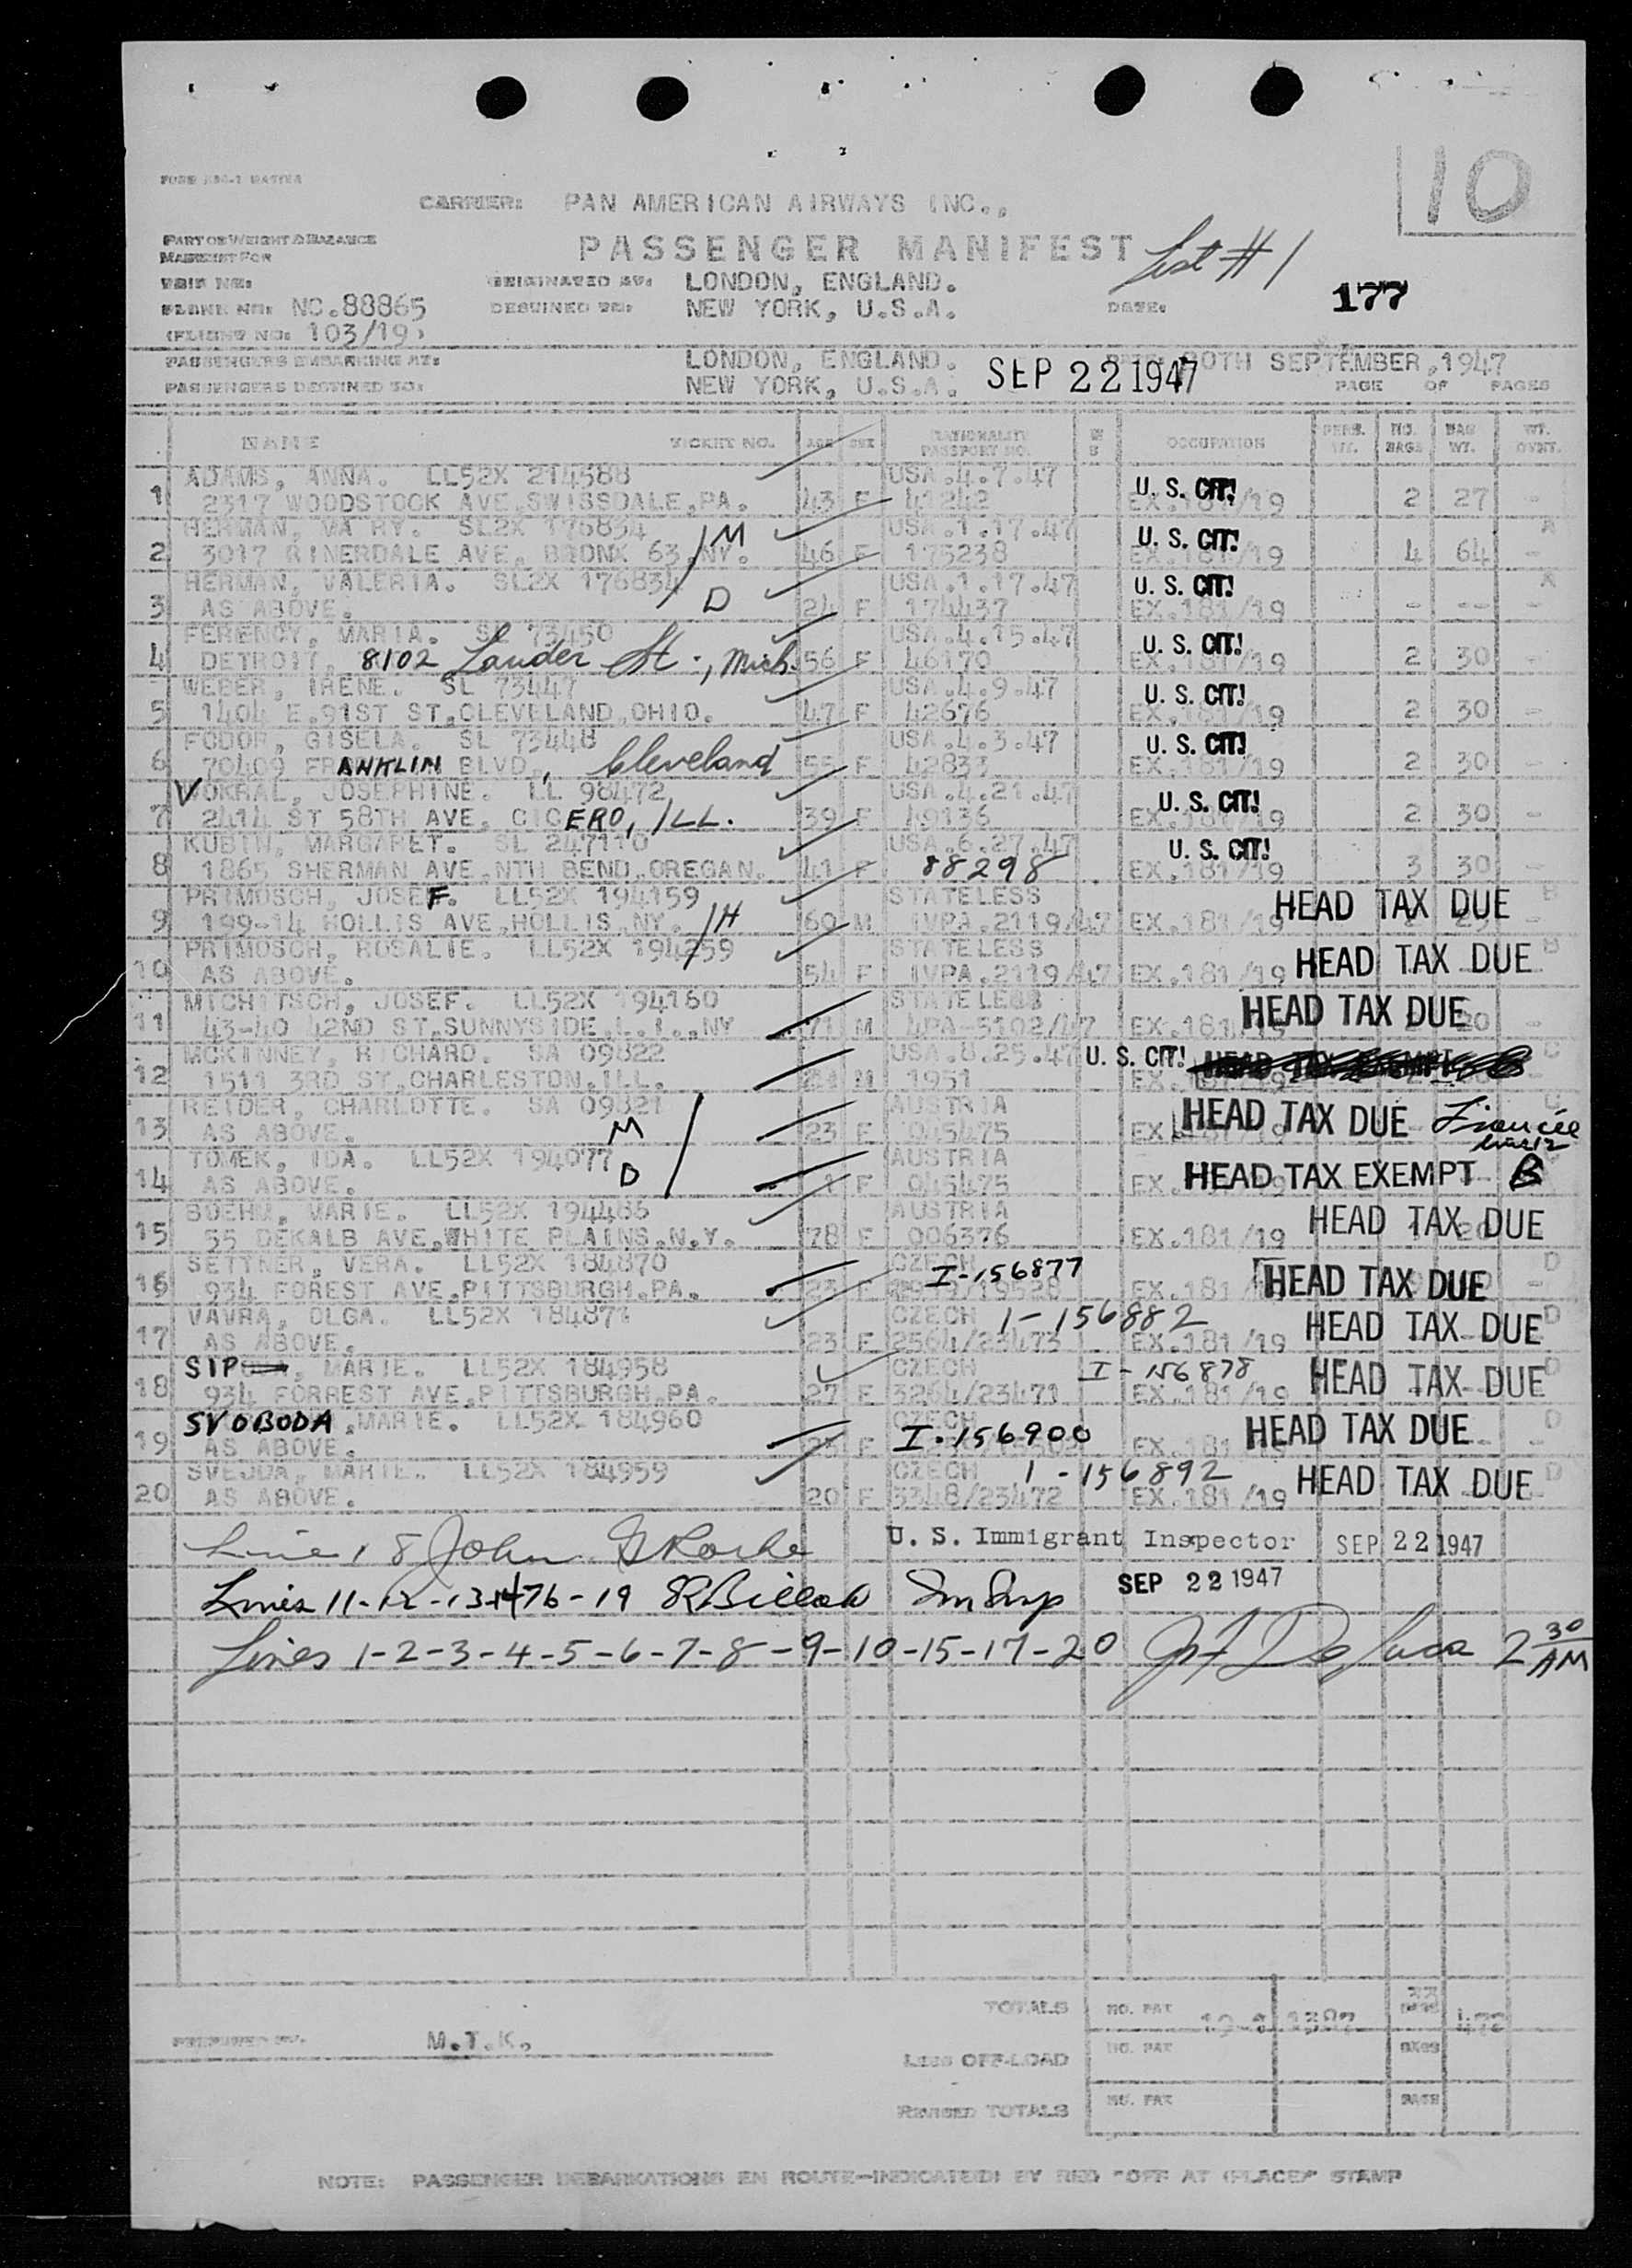 FORM
10
CARRIER: PAN AMERICAN AIRWAYS INC.,
PART OF WEIGHT & BALANCE
MANIFEST FOR
PASSENGER MANIFEST List #1
TRIP NO: ORIGINATED AT: LONDON, ENGLAND. 177
PLANE NO: NC.88865 DESTINED TO: NEW YORK, U.S.A. DATE:
(FLIGHT NO: 103/19)
PASSENGERS EMBARKING AT: LONDON, ENGLAND. SEP 22 1947 SEPTEMBER,1947
PASSENGERS DESTINED TO: NEW YORK, U.S.A. PAGE OF PAGES
NAME TICKET NO. AGE SEX NATIONALITY PASSPORT NO. OCCUPATION PERS. WT. NO. BAGS BAG WT. WT. OVHT.
ADAMS, ANNA. LL52X 214588 USA.4.7.47 U. S. CIT!
1 2317 WOODSTOCK AVE,SWISSDALE,PA. 43 F 41242 EX.181/19 2 27 -
HERMAN, MARY. SL2X 176834 M USA.1.17.47 U. S. CIT! A
2 3017 RINERDALE AVE, BRONX 63,NY. 46 F 175238 EX.181/19 4 64 -
HERMAN, VALERIA. SL2X 176834 D USA.1.17.47 U. S. CIT! A
3 AS ABOVE. 24 F 174437 EX.181/19 - -- -
FERENCY, MARIA. SL 73450 USA.4.15.47 U. S. CIT!
4 DETROIT, 8102 Lauder St., Mich. 56 F 46170 EX.181/19 2 30 -
WEBER, IRENE. SL 73447 USA.4.9.47 U. S. CIT!
5 1404 E.91ST ST,CLEVELAND,OHIO. 47 F 42676 EX.181/19 2 30 -
FODOR, GISELA. SL 73448 USA.4.3.47 U. S. CIT!
6 70409 FRANKLIN BLVD., Cleveland 55 F 42833 EX.181/19 2 30 -
VOKRAL, JOSEPHINE. LL 98472 USA.4.21.47 U. S. CIT!
7 2414 ST 58TH AVE. CICERO, ILL. 39 F 49136 EX.181/19 2 30 -
KUBIN, MARGARET. SL 247110 USA.6.27.47 U. S. CIT!
8 1865 SHERMAN AVE,NTH BEND,OREGAN. 41 F 88298 EX.181/19 3 30 -
PRIMOSCH, JOSEF. LL52X 194159 STATELESS HEAD TAX DUE B
9 199-14 HOLLIS AVE,HOLLIS,NY. H 60 M IVPA.2119/47 EX.181/19
PRIMOSCH, ROSALIE. LL52X 194259 STATELESS HEAD TAX DUE B
10 AS ABOVE. 54 F IVPA.2119/47 EX.181/19
MICHITSCH, JOSEF. LL52X 194160 STATELESS HEAD TAX DUE
11 43-40 42ND ST,SUNNYSIDE,L.I.,NY 71 M 4PA-5102/47 EX.181/19 20 -
MCKINNEY, RICHARD. SA 09822 USA.8.25.47 U. S. CIT! HEAD TAX EXEMPT C
12 1511 3RD ST,CHARLESTON,ILL. M 1951 EX.181/19
REIDER, CHARLOTTE. SA 09821 AUSTRIA HEAD TAX DUE Fiancée C
13 AS ABOVE. M 23 F 045475 EX.181/19 line 12
TOMEK, IDA. LL52X 194077 D AUSTRIA HEAD TAX EXEMPT B
14 AS ABOVE. 1 F 045475 EX.
BOEHM, MARIE. LL52X 194486 AUSTRIA HEAD TAX DUE
15 55 DEKALB AVE,WHITE PLAINS,N.Y. 78 F 006376 EX.181/19 20
SETTNER, VERA. LL52X 184870 CZECH I-156877 HEAD TAX DUE D
16 934 FOREST AVE,PITTSBURGH,PA. 23 F EX.181/
VAVRA, OLGA. LL52X 184871 CZECH 1-156882 HEAD TAX DUE D
17 AS ABOVE. 23 F 2564/23473 EX.181/19
SIP, MARIE. LL52X 184958 CZECH I-156878 HEAD TAX DUE D
18 934 FORREST AVE,PITTSBURGH,PA. 27 F 3264/23471 EX.181/19
SVOBODA, MARIE. LL52X 184960 CZECH I-156900 HEAD TAX DUE D
19 AS ABOVE. F EX.181
SVEJDA, MARIE. LL52X 184959 CZECH 1-156892 HEAD TAX DUE D
20 AS ABOVE. 20 F 3348/23472 EX.181/19
Line 18 John U. S. Immigrant Inspector SEP 22 1947
Lines 11-12-13-14-16-19 SEP 22 1947
Lines 1-2-3-4-5-6-7-8-9-10-15-17-20 De Luca 2 30 AM
TOTALS NO. PAX 472
PREPARED BY. M.T.K.
LESS OFF-LOAD NO. PAX BAGS
REVISED TOTALS NO. PAX BAGS
NOTE: PASSENGER DEBARKATIONS EN ROUTE-INDICATED BY RED "OFF AT (PLACE)" STAMP